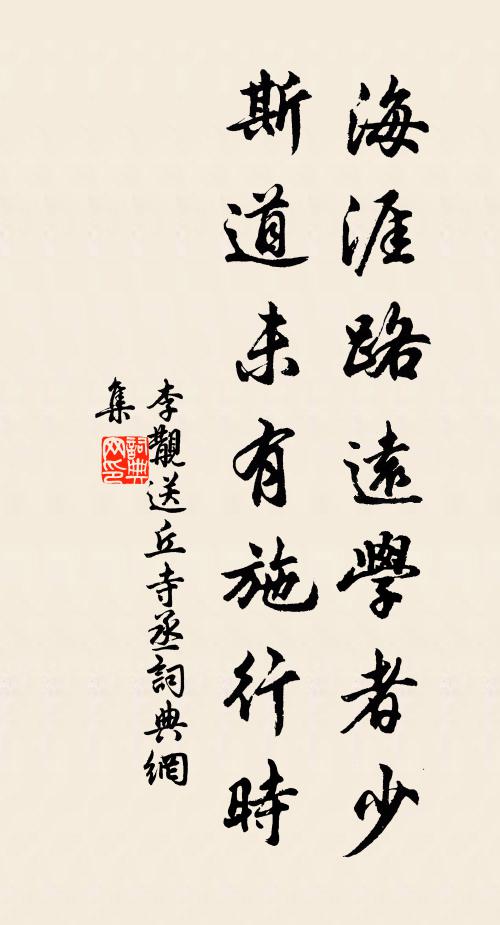 海涯路遠學者少
斯道未有施行時
李覯送丘寺丞詞典網
集
詞典
网印